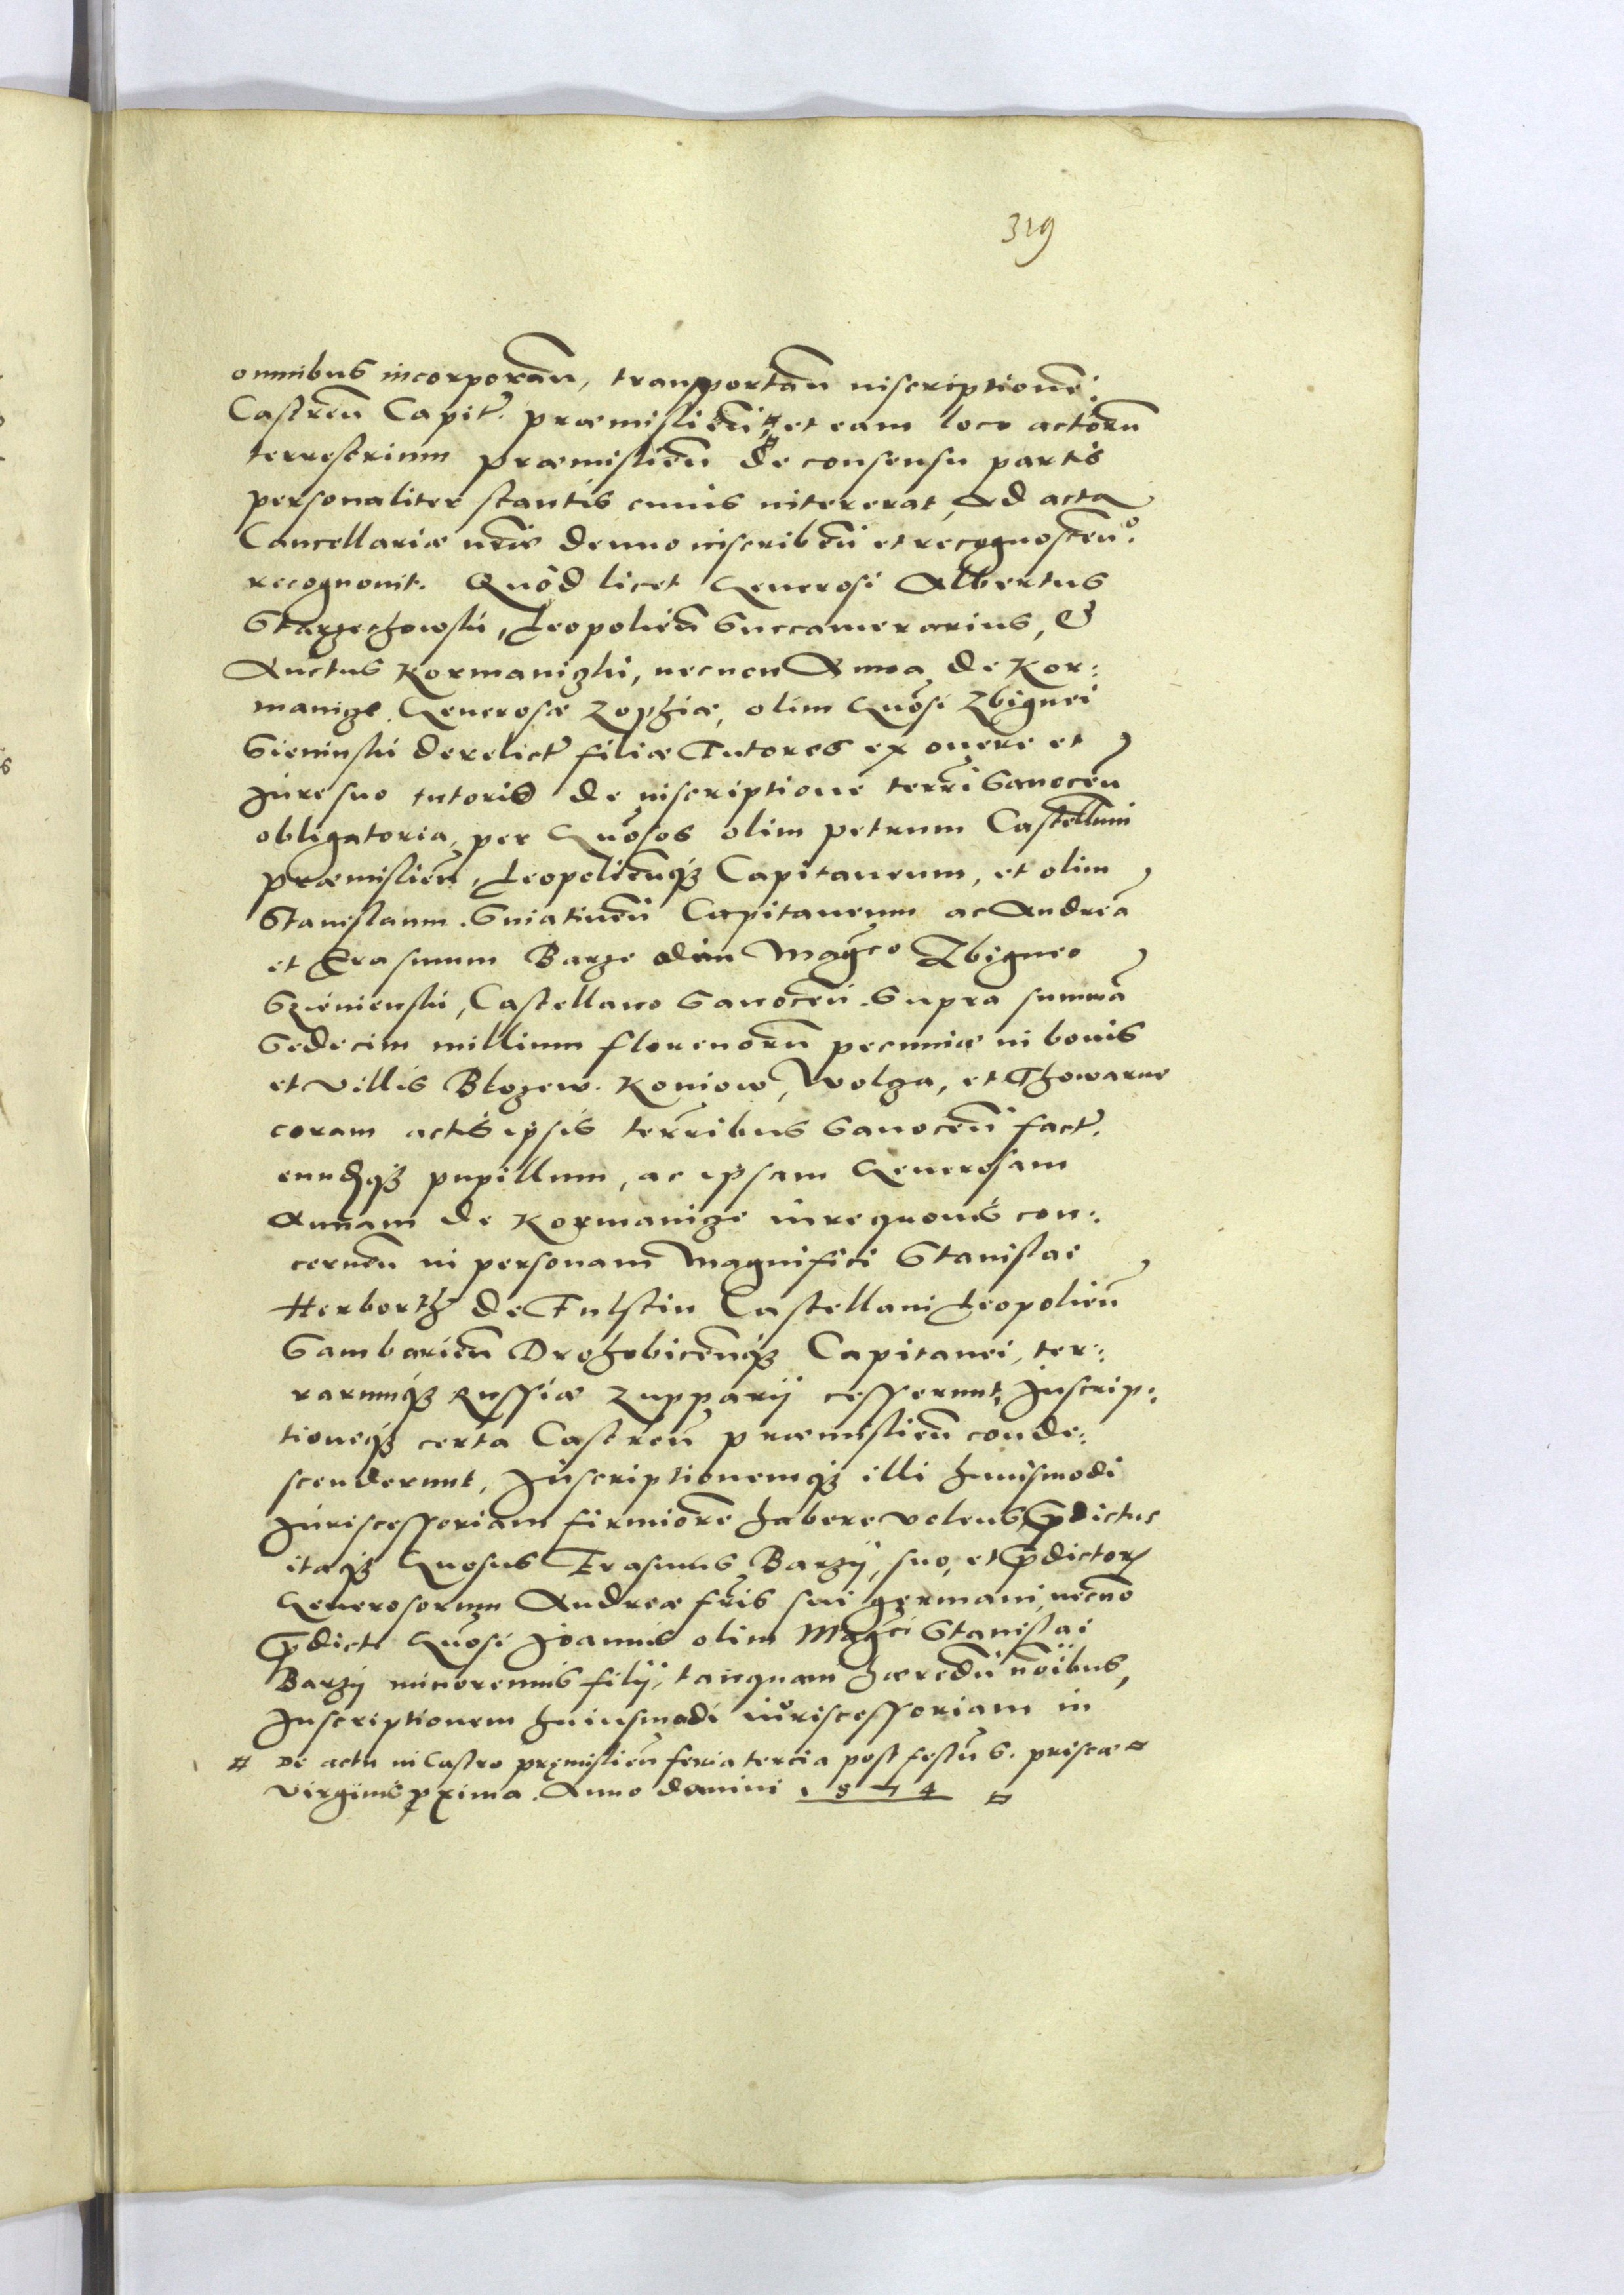 319
omnibus incorporan̄, transportan̄ inscriptionē:
Castren̄ Capit̃. præmislien̄ # et eam loco actorū
terrestrium præmislien̄ de consensu partis
personaliter stantis cuius intererat, ad acta
Cancellariæ nr̄æ denuo inscriben̄ et recognoscen̄:
recognouit. Quòd licet Generosi Albertus
Starzechowski, Leopolien̄ Succamerarius, &
Auctus Kormanizki, necnon Anna de Kor:
manize Generosæ Zophiæ, olim Gnōsi Zbignei
Sieninskii derelict̃ filiæ Tutores ex onere et
Jure suo tutorio de inscriptione terrī Sanocen̄
obligatoria, per Gnōsos olim petrum Castellnū
præmislien̄, Leopolien̄qȝ Capitaneum, et olim
Stanislaum Sniatinen̄ Capitaneum ac Andreā
et Erasmum Barze olim Mag̃co Zbigneo
Szieniensky, Castellano Sanocen̄ Supra summā
Sedecim millium florenorū pecuniæ in bonis
et villis Blozew. Koniow, Wolza, et Thowarne
coram actis ipsis terrībus Sanocen̄ fact̃.
eundqȝ pupillum, ac ipsam Generosam
Annam de Kormanize iureqnouis con:
cernen̄ in personam Magnifici Stanislai
Herborth de Fulstin Castellani Leopolien̄
Samborien̄ Drohobicen̄qȝ Capitanei, ter:
rarumqȝ Russiæ Zupparij cesserunt, Inscrip:
tioneqȝ certa Castren̄ præmislien̄ conde:
scenderunt, Inscriptionemqȝ illi huiusmodi
Juriscessoriam firmiorē habere volens, p̄dictus
itaqȝ Gnosus Erasmus Barzij, suo, et p̄dictorȝ
Generosorum Andreæ frīs sui germani, necnō
p̄dicti Gnōsi Joannis olim Mag̃ci Stanislai
Barzij minorennis filij, tanquam hæredū nōibus,
Inscriptionem huiusmodi iuriscessoriam in
# De actu in Castro pręmislien̄ feria tercia post festū S. priscæ
virginis pxima. Anno domini 1574